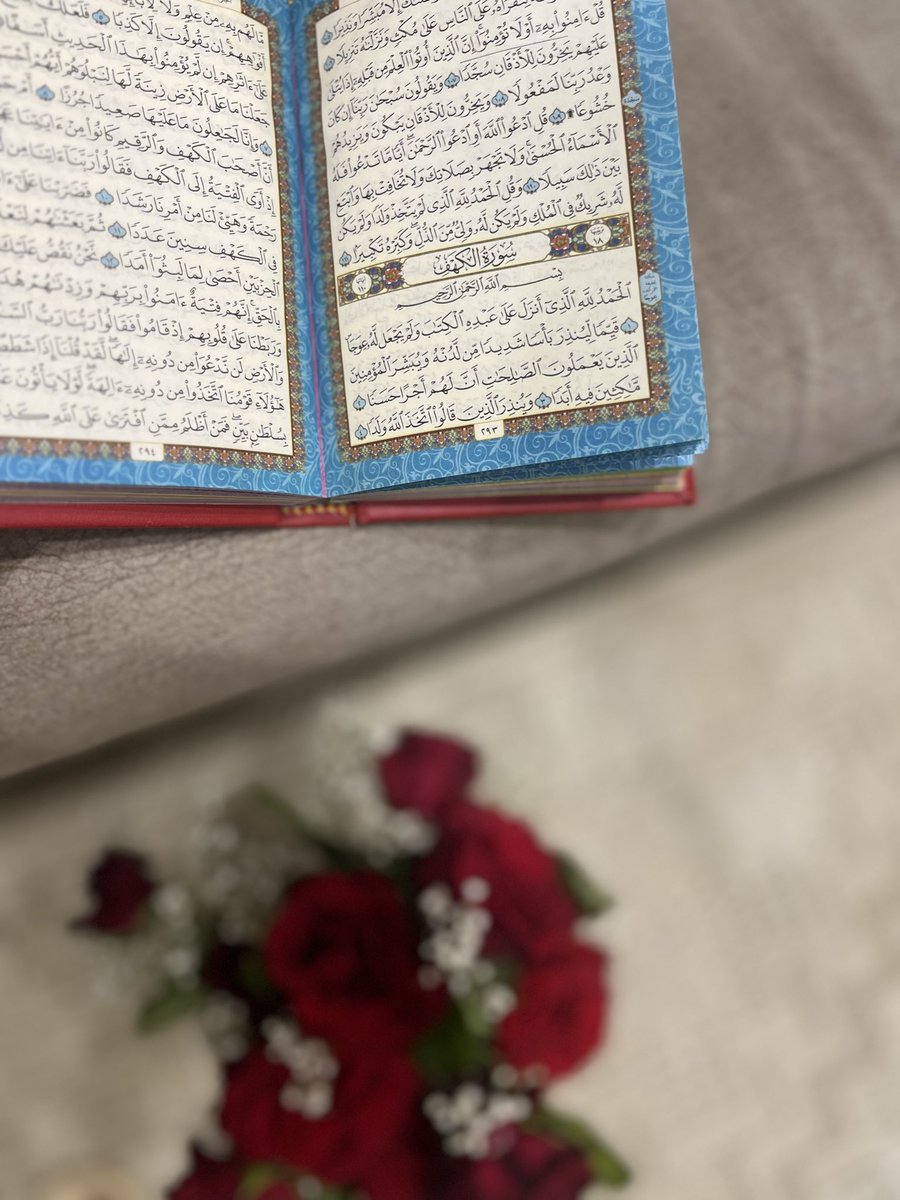 عَلَى ٱلنَّاسِ عَلَىٰ مُكْثٍ وَنَزَّلْنَٰهُ تَنزِيلًا ١٠٦
قُلْ ءَامِنُوا۟ بِهِۦٓ أَوْ لَا تُؤْمِنُوٓا۟ إِنَّ ٱلَّذِينَ أُوتُوا۟ ٱلْعِلْمَ مِن قَبْلِهِۦٓ إِذَا يُتْلَىٰ
عَلَيْهِمْ يَخِرُّونَ لِلْأَذْقَانِ سُجَّدًا ١٠٧ وَيَقُولُونَ سُبْحَٰنَ رَبِّنَآ إِن كَانَ
وَعْدُ رَبِّنَا لَمَفْعُولًا ١٠٨ وَيَخِرُّونَ لِلْأَذْقَانِ يَبْكُونَ وَيَزِيدُهُمْ
خُشُوعًا ۩ ١٠٩ قُلِ ٱدْعُوا۟ ٱللَّهَ أَوِ ٱدْعُوا۟ ٱلرَّحْمَٰنَ ۖ أَيًّا مَّا تَدْعُوا۟ فَلَهُ
ٱلْأَسْمَآءُ ٱلْحُسْنَىٰ ۚ وَلَا تَجْهَرْ بِصَلَاتِكَ وَلَا تُخَافِتْ بِهَا وَٱبْتَغِ
بَيْنَ ذَٰلِكَ سَبِيلًا ١١٠ وَقُلِ ٱلْحَمْدُ لِلَّهِ ٱلَّذِى لَمْ يَتَّخِذْ وَلَدًا وَلَمْ يَكُن
لَّهُۥ شَرِيكٌ فِى ٱلْمُلْكِ وَلَمْ يَكُن لَّهُۥ وَلِىٌّ مِّنَ ٱلذُّلِّ ۖ وَكَبِّرْهُ تَكْبِيرًۢا ١١١
سُورَةُ ٱلْكَهْفِ
١٨
١١٠
بِسْمِ ٱللَّهِ ٱلرَّحْمَٰنِ ٱلرَّحِيمِ
ٱلْحَمْدُ لِلَّهِ ٱلَّذِىٓ أَنزَلَ عَلَىٰ عَبْدِهِ ٱلْكِتَٰبَ وَلَمْ يَجْعَل لَّهُۥ عِوَجَا
١ قَيِّمًا لِّيُنذِرَ بَأْسًا شَدِيدًا مِّن لَّدُنْهُ وَيُبَشِّرَ ٱلْمُؤْمِنِينَ
ٱلَّذِينَ يَعْمَلُونَ ٱلصَّٰلِحَٰتِ أَنَّ لَهُمْ أَجْرًا حَسَنًا ٢
مَّٰكِثِينَ فِيهِ أَبَدًا ٣ وَيُنذِرَ ٱلَّذِينَ قَالُوا۟ ٱتَّخَذَ ٱللَّهُ وَلَدًا ٤
٢٩٣
لَهُم بِهِۦ مِنْ عِلْمٍ وَلَا
أَفْوَٰهِهِمْ ۚ إِن يَقُولُونَ إِلَّا كَذِبًا ٥ فَلَعَلَّكَ
عَلَىٰٓ ءَاثَٰرِهِمْ إِن لَّمْ يُؤْمِنُوا۟ بِهَٰذَا ٱلْحَدِيثِ أَسَفًا
جَعَلْنَا مَا عَلَى ٱلْأَرْضِ زِينَةً لَّهَا لِنَبْلُوَهُمْ أَيُّهُمْ أَحْسَنُ
٧ وَإِنَّا لَجَٰعِلُونَ مَا عَلَيْهَا صَعِيدًا جُرُزًا ٨ أَمْ
أَنَّ أَصْحَٰبَ ٱلْكَهْفِ وَٱلرَّقِيمِ كَانُوا۟ مِنْ ءَايَٰتِنَا
إِذْ أَوَى ٱلْفِتْيَةُ إِلَى ٱلْكَهْفِ فَقَالُوا۟ رَبَّنَآ ءَاتِنَا مِن
رَحْمَةً وَهَيِّئْ لَنَا مِنْ أَمْرِنَا رَشَدًا ١٠ فَضَرَبْنَا عَلَىٰٓ
فِى ٱلْكَهْفِ سِنِينَ عَدَدًا ١١ ثُمَّ بَعَثْنَٰهُمْ لِنَعْلَمَ
ٱلْحِزْبَيْنِ أَحْصَىٰ لِمَا لَبِثُوٓا۟ أَمَدًا ١٢ نَّحْنُ نَقُصُّ عَلَيْكَ
بِٱلْحَقِّ ۚ إِنَّهُمْ فِتْيَةٌ ءَامَنُوا۟ بِرَبِّهِمْ وَزِدْنَٰهُمْ
وَرَبَطْنَا عَلَىٰ قُلُوبِهِمْ إِذْ قَامُوا۟ فَقَالُوا۟ رَبُّنَا رَبُّ
وَٱلْأَرْضِ لَن نَّدْعُوَا۟ مِن دُونِهِۦٓ إِلَٰهًا ۖ لَّقَدْ قُلْنَآ إِذًا
هَٰٓؤُلَآءِ قَوْمُنَا ٱتَّخَذُوا۟ مِن دُونِهِۦٓ ءَالِهَةً ۖ لَّوْلَا يَأْتُونَ
بِسُلْطَٰنٍۭ بَيِّنٍ ۖ فَمَنْ أَظْلَمُ مِمَّنِ ٱفْتَرَىٰ عَلَى ٱللَّهِ
٢٩٤